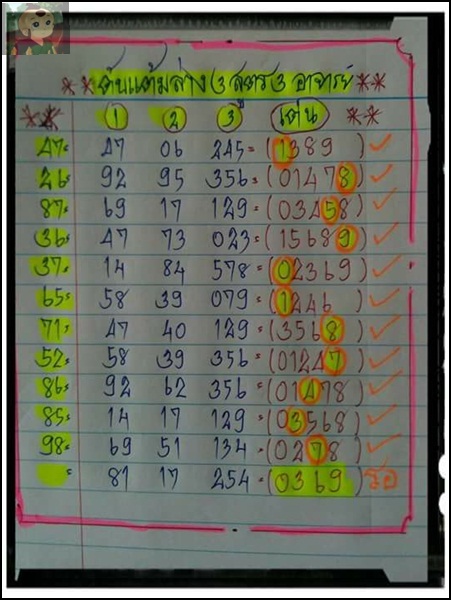 ** ต้นแต้มล่าง 3 สูตร 3 อาจารย์ **
** 1 2 3 เด่น **
47= 47 06 245=(1389)✓
26= 92 95 356=(01478)✓
87= 69 17 129=(03458)✓
36= 47 73 023=(15689)✓
37= 14 84 578=(02369)✓
65= 58 39 079=(1246)✓
71= 47 40 129=(3568)✓
52= 58 39 356=(01247)✓
86= 92 62 356=(01478)✓
85= 14 17 129=(03568)✓
98= 69 51 134=(0278)✓
= 81 17 254=(0369)รอ